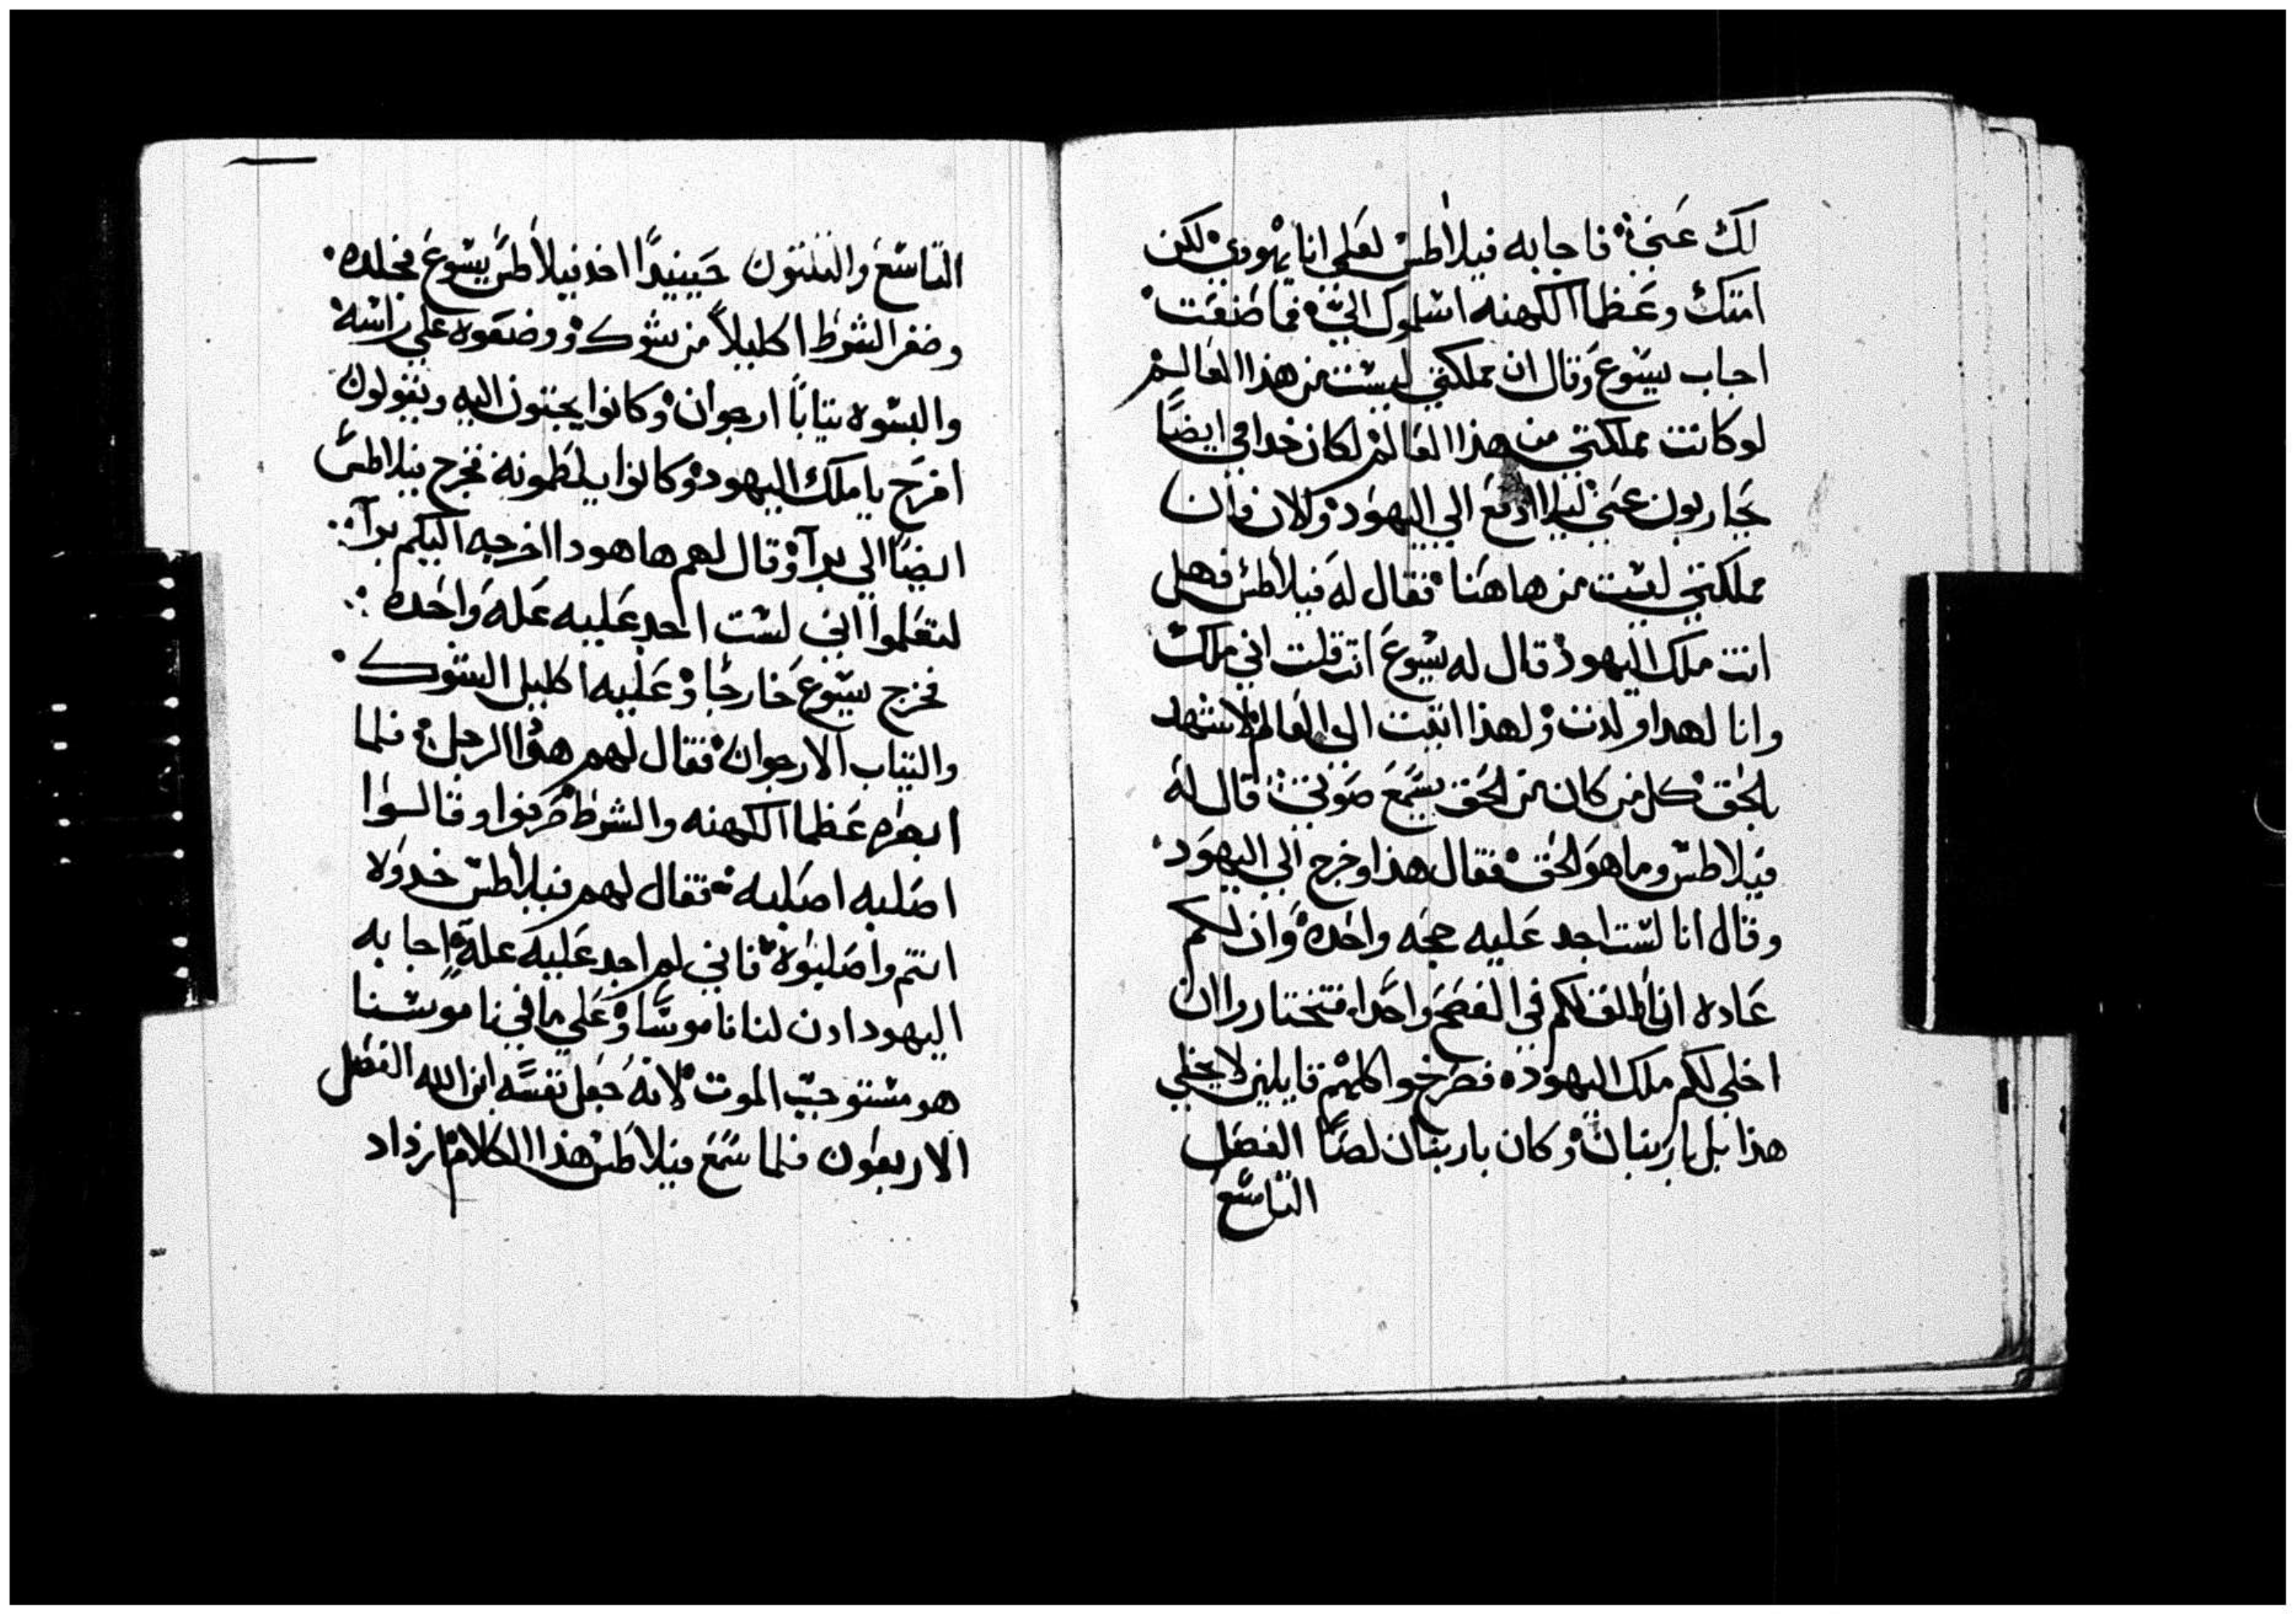 لك عني فاجابه فيلاطس لعلي انا يهودي لكن
امتك وعظما الكهنه اسلموك الي فما صنعت
اجاب يسوع وقال ان مملكتي ليست من هذا العالم
لو كانت مملكتي من هذا العالم لكان خدامي ايضاً
يحاربون عني ليلا ادفع الي اليهود والان فان
مملكتي ليست من هاهنا فقال له فيلاطس فهل
انت ملك اليهود قال له يسوع انت قلت اني ملك
وانا لهدا ولدت ولهذا اتيت الي العالم لاشهد
بالحق كل من كان من الحق يسمع صوتي قال له
فيلاطس وما هو الحق فقال هذا وخرج الي اليهود
وقال انا لست اجد عليه حجه واحده وان لكم
عاده ان اطلق لكم في الفصح واحداً فتختاروا ان
اخلي لكم ملك اليهود فصرخوا كلهم قايلين لا تخلي
هذا بل باربنان وكان باربنان لصاً الفصل
التاسع
التاسع والتلتون حينيداً اخد فيلاطس يسوع فجلده
وضفر الشرط اكليلاً من شوك ووضعوه علي راسه
والبسوه تياباً ارجوان وكانوا يجتون اليه ويقولون
افرح يا ملك اليهود وكانوا يلطمونه فخرج فيلاطس
ايضاً الي براً وقال لهم ها هودا اخرجه اليكم براً
لتعلموا اني لست اجد عليه عله واحده
فخرج يسوع خارجاً وعليه اكليل الشوك
والتياب الارجوان فقال لهم هوا الرجل فلما
ابصره عظما الكهنه والشرط صرخوا وقالوا
اصلبه اصلبه فقال لهم فيلاطس خدوه
انتم واصلبوه فاني لم اجد عليه علة اجابه
اليهود ان لنا ناموساً وعلي ما في ناموسنا
هو مستوجب الموت لانه جعل نفسه ابن الله الفصل
الاربعون فلما سمع فيلاطس هذا الكلام ازداد